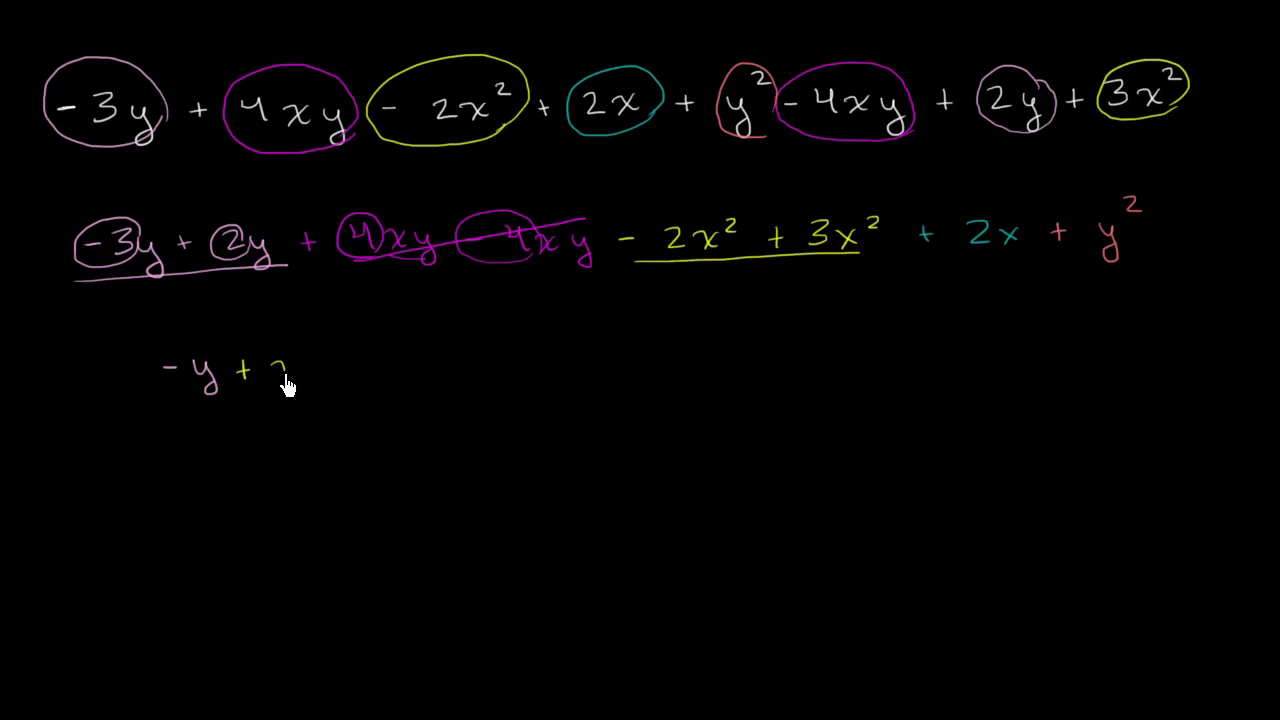 -3y + 4xy - 2x² + 2x + y² - 4xy + 2y + 3x²
-3y + 2y + 4xy - 4xy - 2x² + 3x² + 2x + y²
-y +